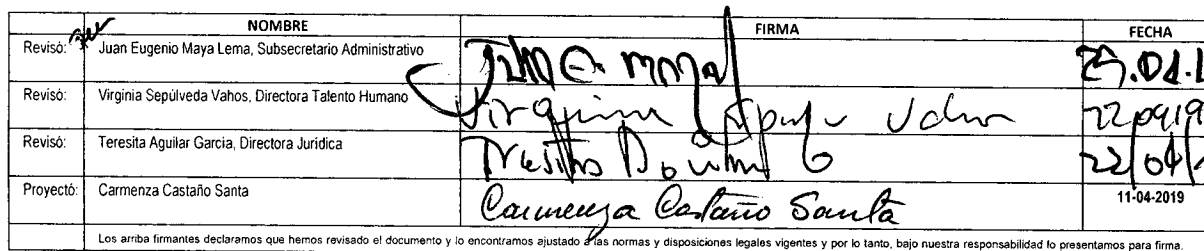 NOMBRE FIRMA FECHA
Revisó: Juan Eugenio Maya Lema, Subsecretario Administrativo
Revisó: Virginia Sepúlveda Vahos, Directora Talento Humano 22/04/19
Revisó: Teresita Aguilar García, Directora Jurídica 22/04/
Proyectó: Carmenza Castaño Santa Carmenza Castaño Santa 11-04-2019
Los arriba firmantes declaramos que hemos revisado el documento y lo encontramos ajustado a las normas y disposiciones legales vigentes y por lo tanto, bajo nuestra responsabilidad lo presentamos para firma.